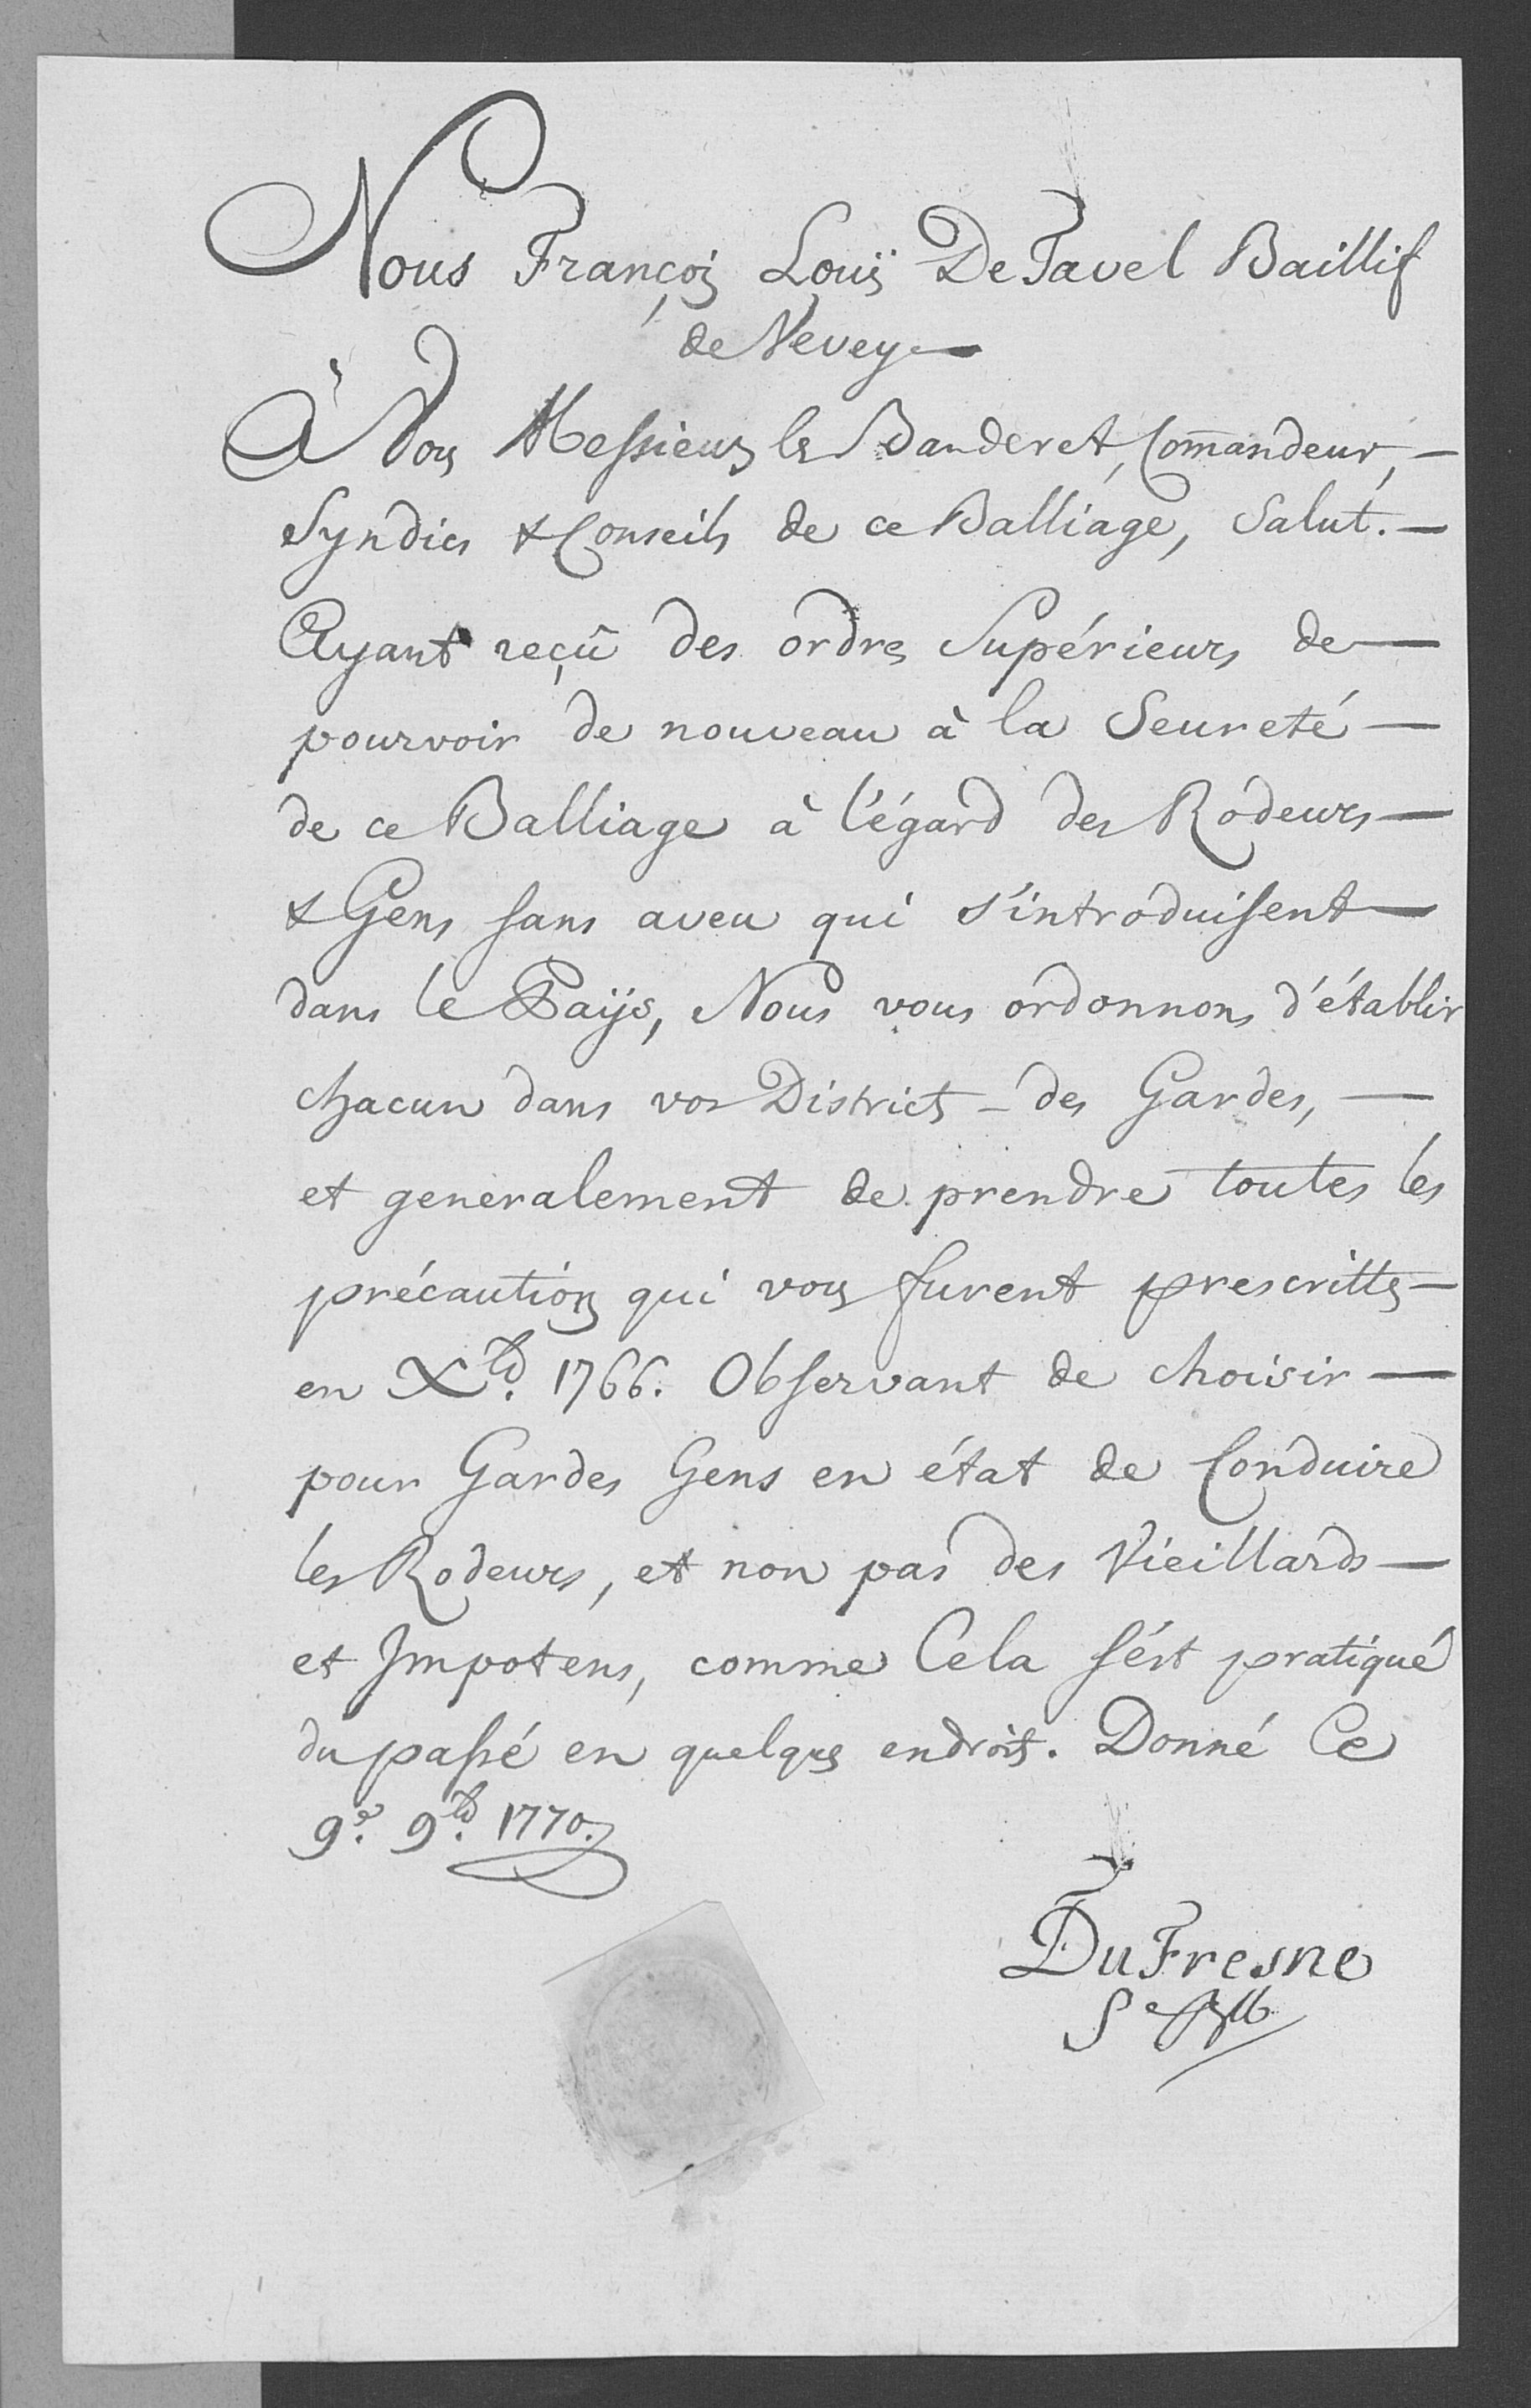 Nous François Louïs De Tavel Baillif
de Vevey —
À Vous Messieurs le Banderet, Com̄andeur, —
Syndics & Conseils de ce Balliage, Salut. —
Ayant reçû des ordres Supérieurs de —
pourvoir de nouveau à la Seureté —
de ce Balliage à l'égard des Rodeurs —
& Gens sans aveu qui s'introduisent —
dans le Païs, Nous vous ordonnons d'établir
chacun dans vos Districts - des Gardes, —
et generalement de prendre toutes les
précautions qui vous furent prescrittes —
en Xbr̃e. 1766. Observant de choisir —
pour Gardes Gens en état de Conduire
les Rodeurs, et non pas des Vieillards —
et Impotens, comme Cela s'ést pratiqué
du passé en quelques endroits. Donné Ce
9e. 9br̃e. 1770.
DuFresne